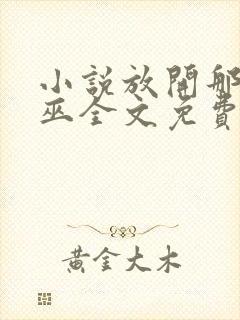 小說放開那
巫全文免費
黃金大木